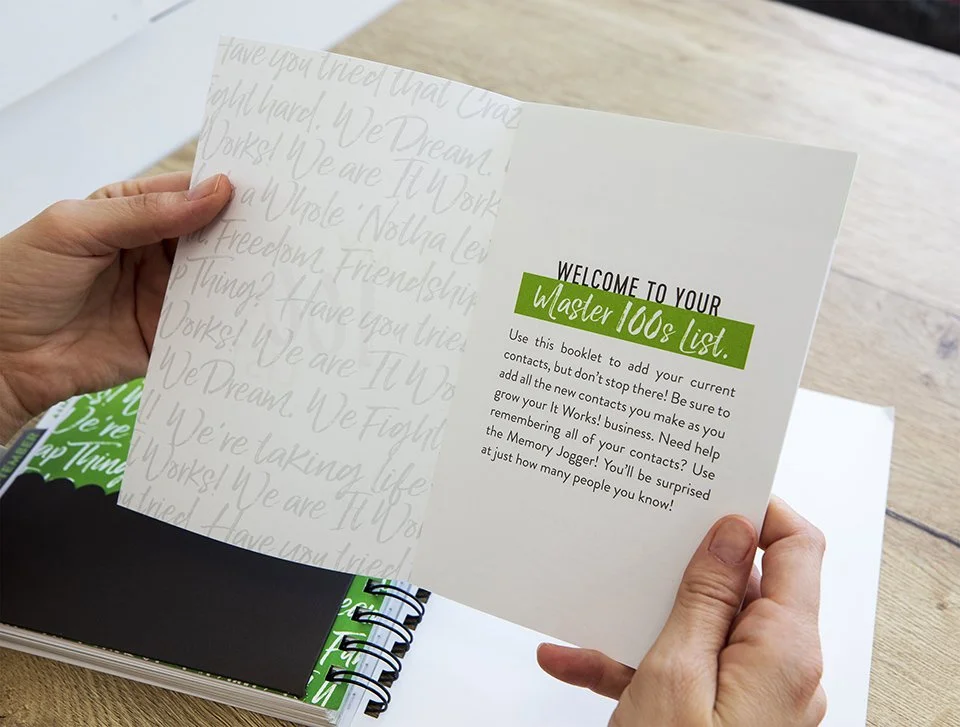 Have you tried that
Fight hard. We Dream.
Works! We are It Work
a Whole 'Notha Lev
Freedom, Friendship
p Thing? Have you tried
Works! We are It Wo
We Dream. We Fight
! We're taking life
Works! We are It Wor
tried Have you tried
WELCOME TO YOUR
Master 100s List.
Use this booklet to add your current
contacts, but don't stop there! Be sure to
add all the new contacts you make as you
grow your It Works! business. Need help
remembering all of your contacts? Use
the Memory Jogger! You'll be surprised
at just how many people you know!
We're
ap Thing
TEMBER